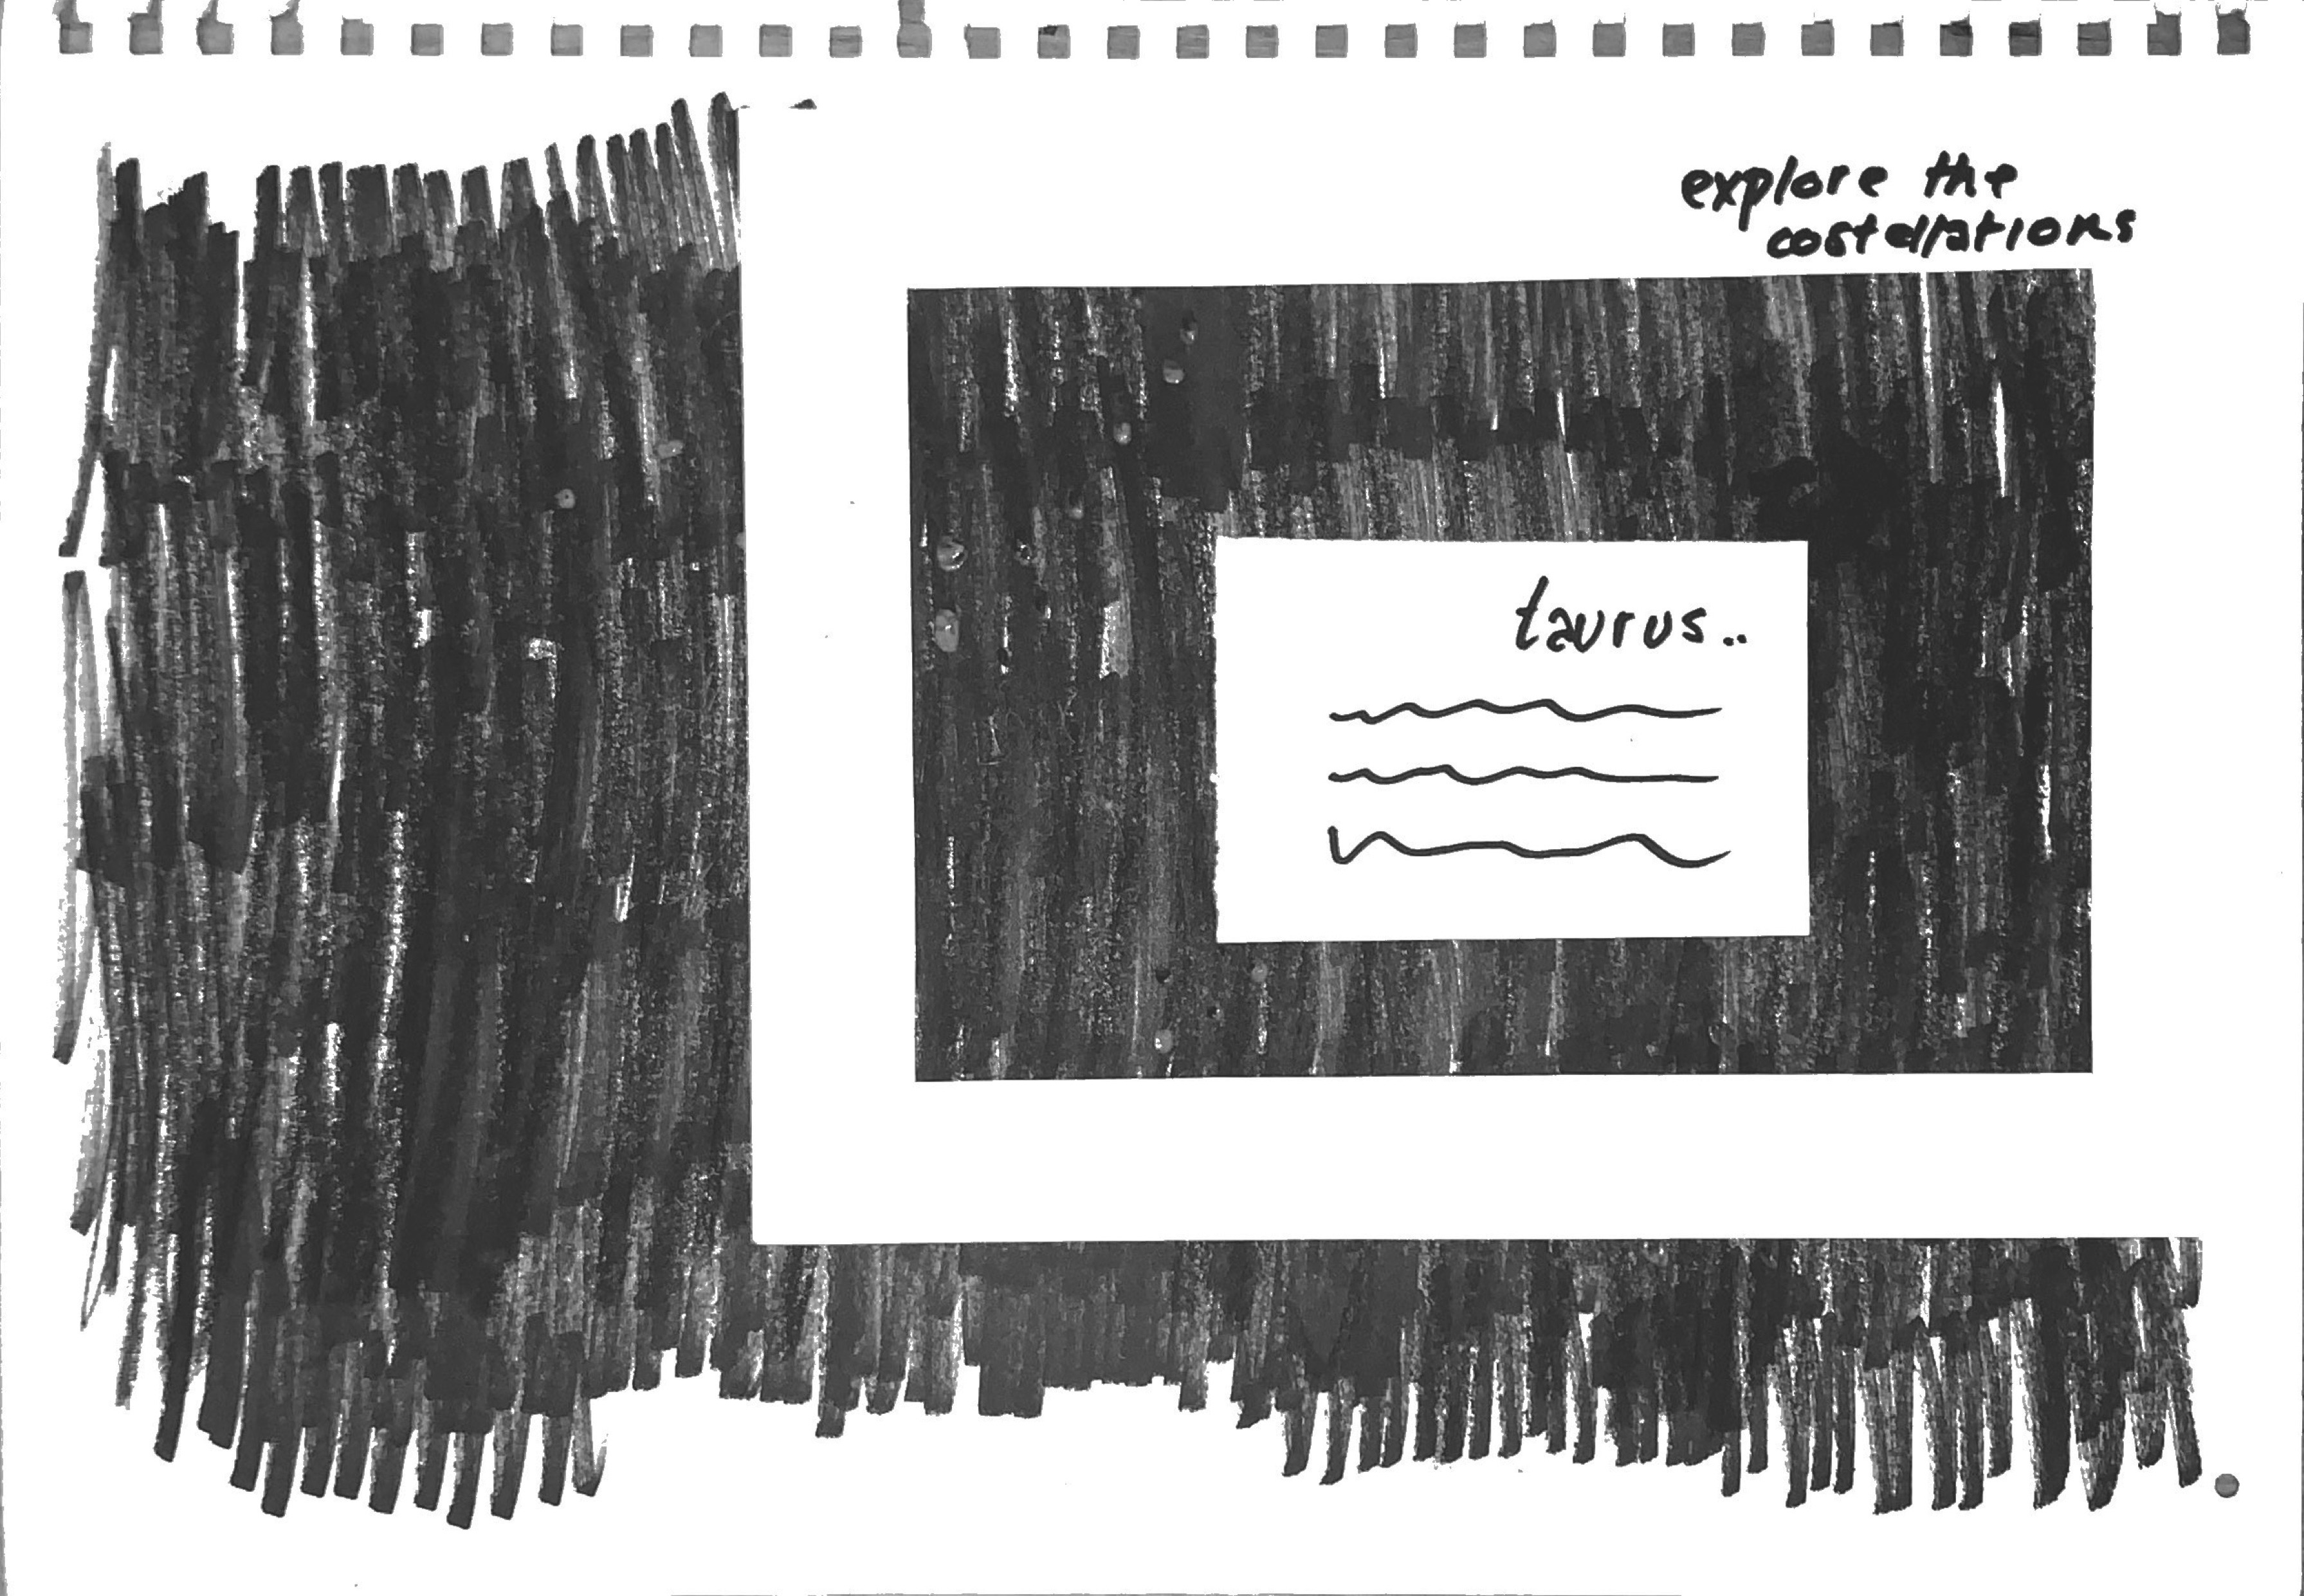 explore the
costellations
taurus..